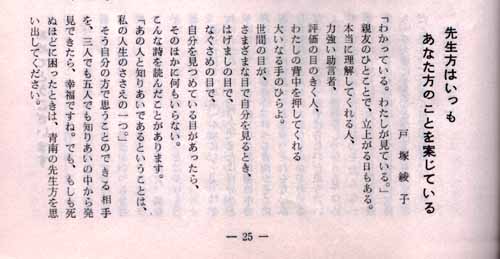 先生方はいつも
あなた方のことを案じている
戸塚綾子
「わかっている。わたしが見ている。」
親友のひとことで、立上がる日もある。
本当に理解してくれる人、
力強い助言者、
評価の目のきく人、
わたしの背中を押してくれる
大いなる手のひらよ。
世間の目が、
さまざまな目で自分を見るとき、
はげましの目で、
なぐさめの目で、
自分を見つめている目があったら、
そのほかに何もいらない。
こんな詩を読んだことがあります。
「あの人と知りあいであるということは、
私の人生のささえの一つ。」
そう自分の方で思うことのできる相手
を、三人でも五人でも知りあいの中から発
見できたら、幸福ですね。でも、もしも死
ぬほどに困ったときは、青南の先生方を思
い出してください。
— 25 —